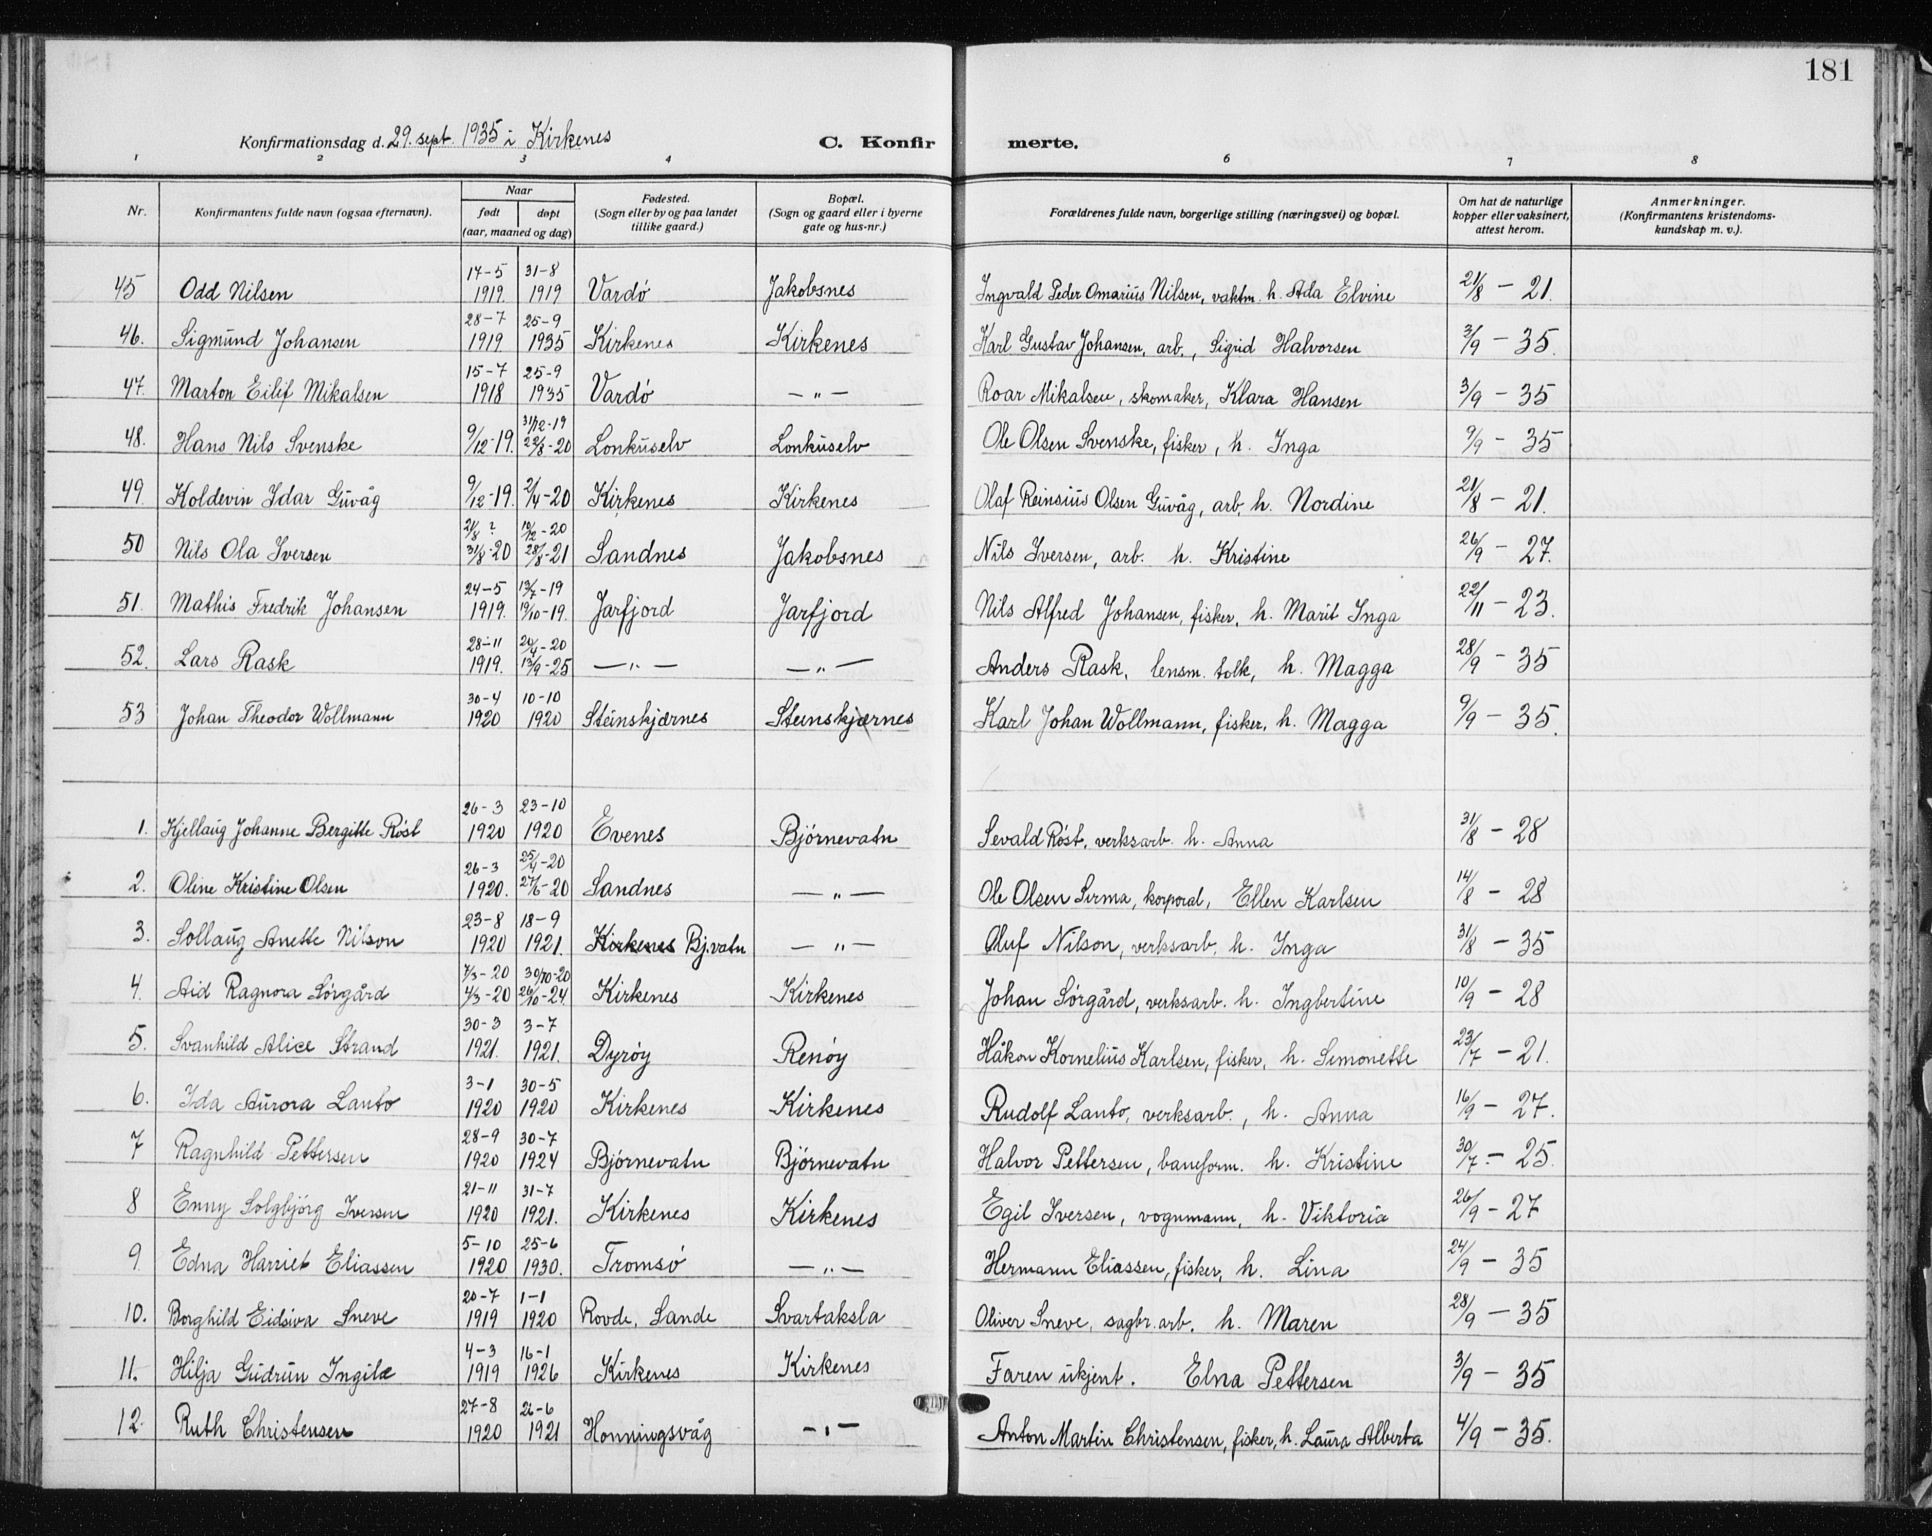 181
Konfirmationsdag d. 29. sept. 1935 i Kirkenes C. Konfirmerte.
1 2 3 4 6 7 8
Nr. Konfirmantens fulde navn (ogsaa efternavn). Naar født døpt (aar, maaned og dag) Fødested. (Sogn eller by og paa landet tillike gaard.) Bopæl. (Sogn og gaard eller i byerne gate og hus-nr.) Forældrenes fulde navn, borgerlige stilling (næringsvei) og bopæl. Om hat de naturlige kopper eller vaksinert, attest herom. Anmerkninger. (Konfirmantens kristendomskundskap m. v.).
45 Odd Nilsen 17-5 1919. 31-8 1919 Vardö Jakobsnes Ingvald Peder Omarius Nilsen, vaktm. h. Ada Elvine 21/8 - 21.
46. Sigmund Johansen 28-7 1919 25-9 1935 Kirkenes Kirkenes Karl Gustav Johansen, arb., Sigrid Halvorsen 3/9 - 35.
47. Marton Eilif Mikalsen 15-7 1918 25-9 1935 Vardö - " - Roar Mikalsen, skomaker, Klara Hansen 3/9 - 35
48. Hans Nils Svenske 9/12-19. 31/12-19 22/8-20 Lonkuselv Lonkuselv Ole Olsen Svenske, fisker, h. Inga 9/9 - 35
49. Koldevin Idar Guvåg 9/12-19. 2/4-20 Kirkenes Kirkenes Olaf Reinsius Olsen Guvåg, arb. h. Nordine 21/8 - 21.
50 Nils Ola Iversen 21/8 ? 31/8-20 19/12-20 28/8-21 Sandnes Jakobsnes Nils Iversen, arb. h. Kristine 26/9 - 27.
51. Mathis Fredrik Johansen 24-5 1919. 13/7-19 19/10-19. Jarfjord Jarfjord Nils Alfred Johansen, fisker, h. Marit Inga 22/11 - 23.
52. Lars Rask 28-11 1919. 20/4-20 13/9-25 - " - - " - Anders Rask, lensm. tolk, h. Magga 28/9 - 35
53 Johan Theodor Wollmann 30-4 1920 10-10 1920 Steinskjærnes Steinskjærnes Karl Johan Wollmann, fisker, h. Magga 9/9 - 35.
1. Kjellaug Johanne Bergitte Röst 26-3 1920 23-10 1920 Evenes Björnevatn Sevald Röst, verksarb. h. Anna 31/8 - 28
2. Oline Kristine Olsen 26-3 1920. 25/4-20 27/6-20 Sandnes - " - Ole Olsen Sirma, korporal, Ellen Karlsen 14/8 - 28
3. Sollaug Anette Nilson 23-8 1920 18-9 1921. Kirkenes Bj.vatn - " - Oluf Nilson, verksarb. h. Inga 31/8 - 35
4. Aid Ragnora Sörgård 7/3-20 4/3-20 30/10-20 26/10-24 Kirkenes Kirkenes Johan Sörgård, verksarb. h. Ingbertine 10/9 - 28
5. Svanhild Alice Strand 30-3 1921. 3-7 1921. Dyröy Renöy Håkon Kornelius Karlsen, fisker, h. Simonette 23/7 - 21.
6. Ida Aurora Lanto 3-1 1920 30-5 1920 Kirkenes Kirkenes Rudolf Lanto, verksarb., h. Anna 16/9 - 27.
7 Ragnhild Pettersen 28-9 1920 30-7 1924 Björnevatn Björnevatn Halvor Pettersen, baneform. h. Kristine 30/7 - 25.
8 Enny Solgbjörg Iversen 21-11 1920 31-7 1921. Kirkenes Kirkenes Egil Iversen, vognmann, h. Viktoria 26/9 - 27
9. Edna Harriet Eliassen 5-10 1920 25-6 1930. Tromsö - " - Hermann Eliassen, fisker, h. Lina 24/9 - 35
10. Borghild Eidsiva Sneve 20-7 1919 1-1 1920 Rovde, Sande Svartaksla Oliver Sneve, sagbr. arb. h. Maren 28/9 - 35
11. Hilja Gudrun Ingilæ 4-3 1919 16-1 1926 Kirkenes Kirkenes Faren ukjent. Elna Pettersen 3/9 - 35
12. Ruth Christensen 27-8 1920 26-6 1921 Honningsvåg - " - Anton Martin Christensen, fisker, h. Laura Alberta 4/9 - 35.